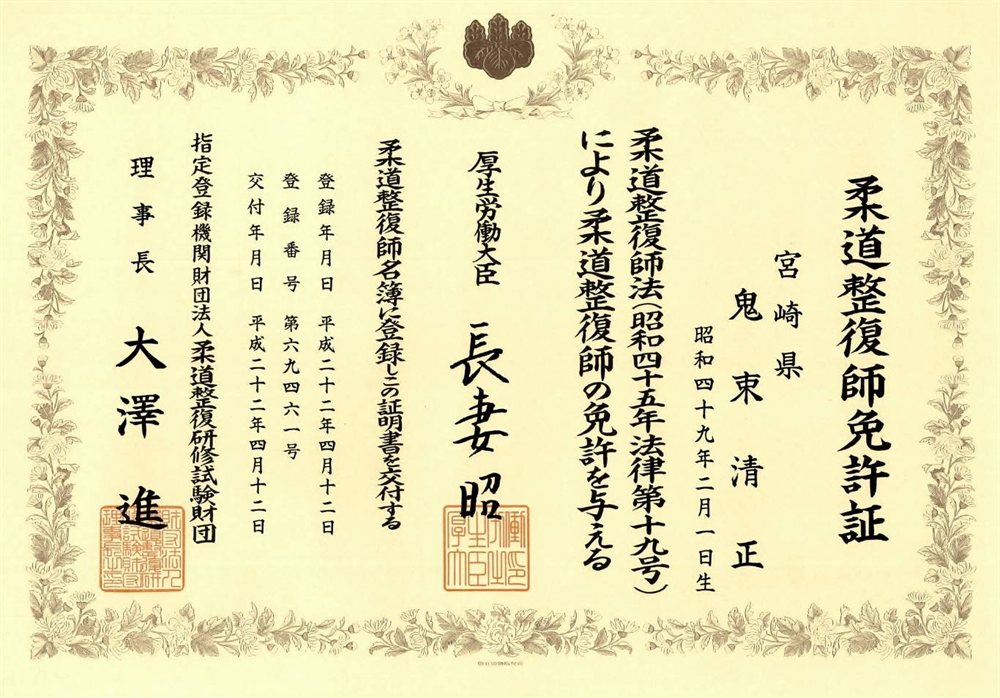 柔道整復師免許証
宮崎県
鬼束清正
昭和四十九年二月一日生
柔道整復師法(昭和四十五年法律第十九号)
により柔道整復師の免許を与える
厚生労働大臣 長妻昭
柔道整復師名簿に登録しこの証明書を交付する
登録年月日 平成二十二年四月十二日
登録番号 第六九四六一号
交付年月日 平成二十二年四月十二日
指定登録機関財団法人柔道整復研修試験財団
理事長 大澤進